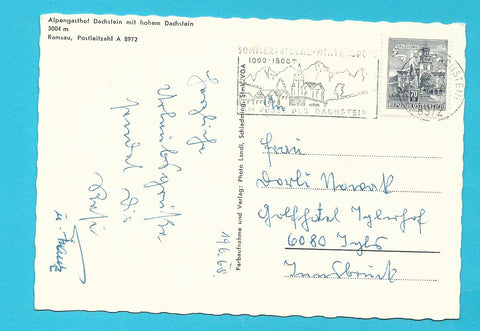 Alpengasthof Dachstein mit hohem Dachstein
3004 m
Ramsau, Postleitzahl A 8972
SOMMERFRISCHE-WINTERSPORT
1000-1800m
DES DACHSTEIN
8972
REPUBLIK ÖSTERREICH
70
Herzliche
Urlaubsgrüße
sendet Dir
u. Franz
19.6.68.
Farbaufnahme und Verlag: Photo Landl, Schladming, Stmk./VGA
Frau
Dorli Nowak
Golfhotel Iglerhof
6080 Igls
Innsbruck